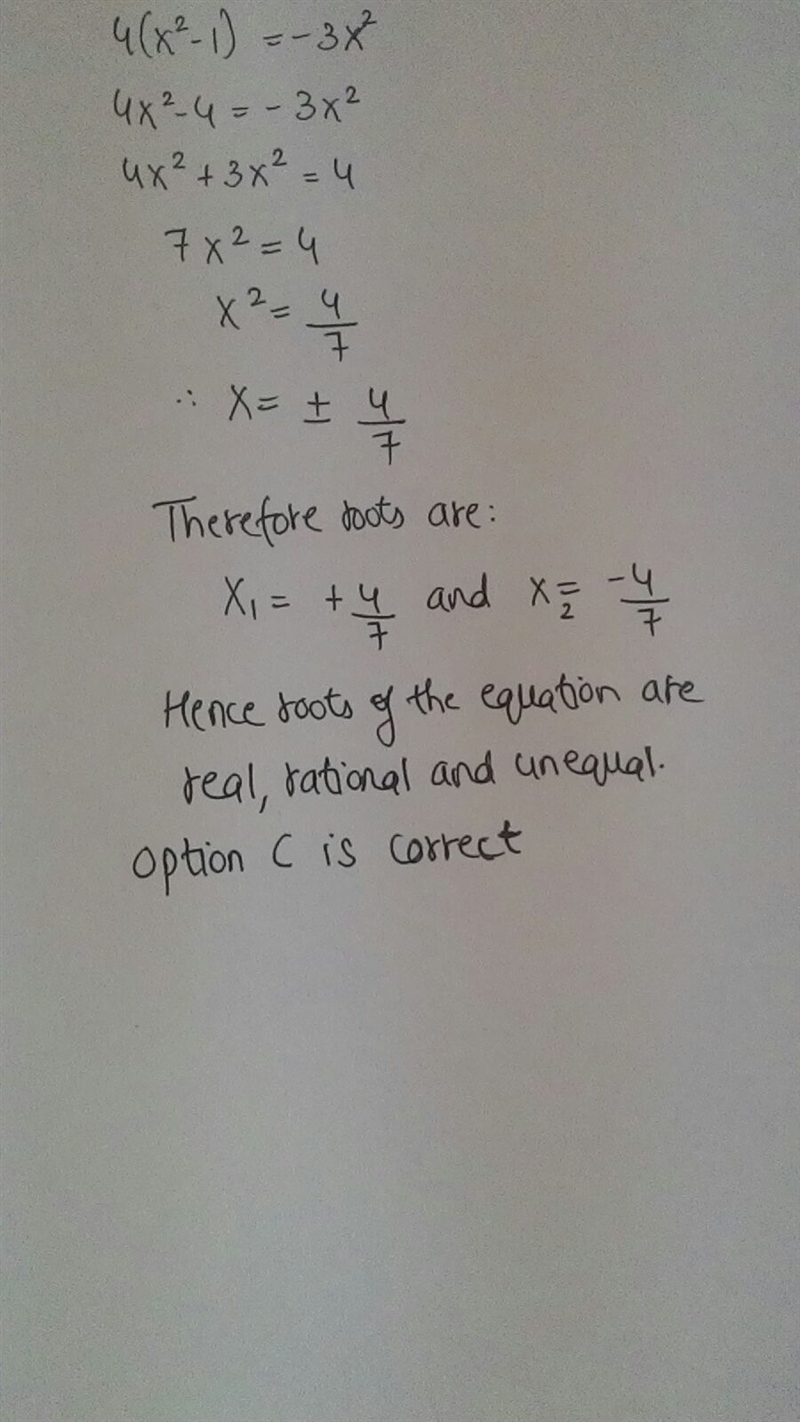 4(x²-1) = -3x²
4x²-4 = -3x²
4x²+3x² = 4
7x² = 4
x² = 4/7
∴ x = ± 4/7
Therefore roots are:
x₁ = +4/7 and x₂ = -4/7
Hence roots of the equation are
real, rational and unequal.
option C is correct